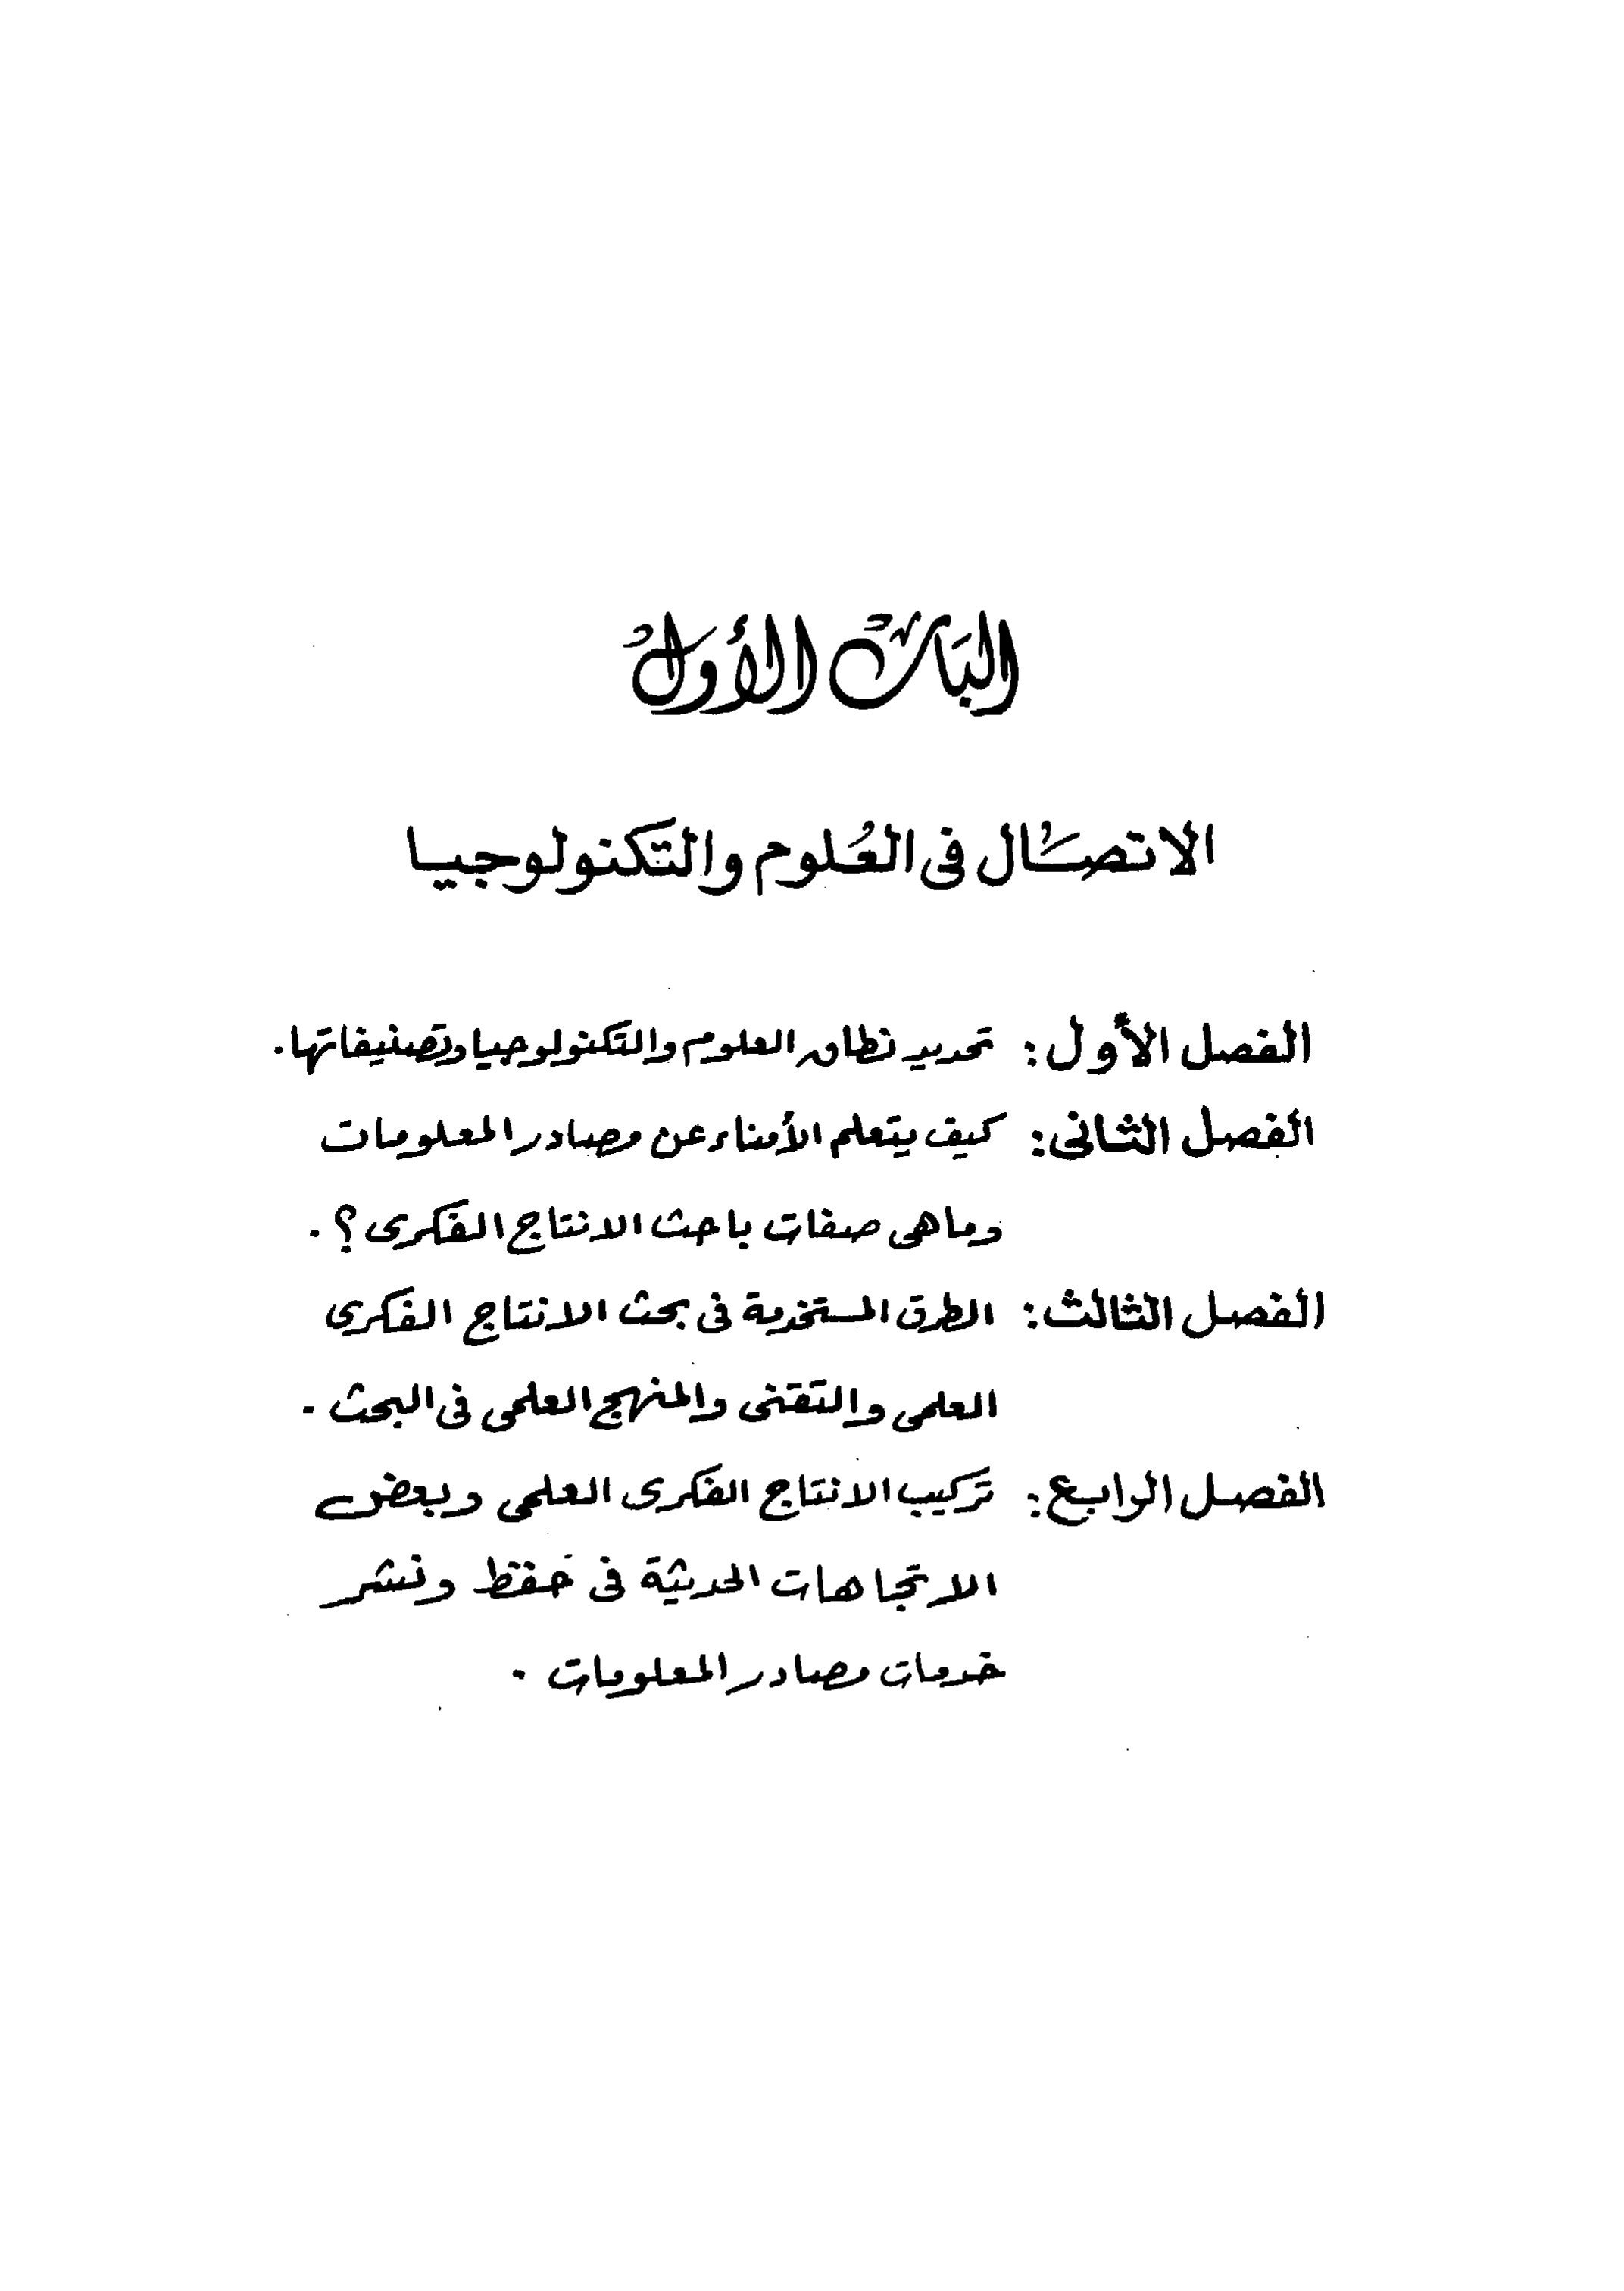 الباب الأول
الاتصال فى العُلوم والتكنولوجيا
الفصل الأول: تحديد نطاق العلوم والتكنولوجيا وتصنيفاتها.
الفصل الثانى: كيف يتعلم الأمناء عن مصادر المعلومات
وماهى صفات باحث الانتاج الفكرى؟.
الفصل الثالث: الطرق المستخدمة فى بحث الانتاج الفكرى
العلمى والتقنى والمنهج العلمى فى البحث.
الفصل الرابع: تركيب الانتاج الفكرى العلمى وبعض
الاتجاهات الحديثة فى حفظ ونشر
خدمات مصادر المعلومات.